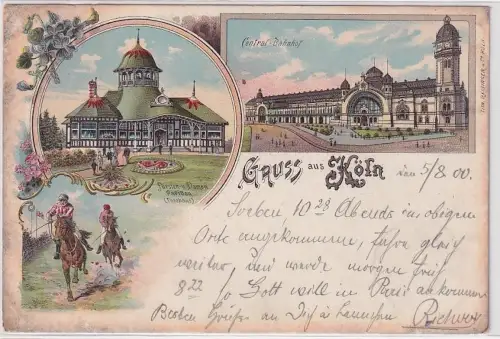 Central-Bahnhof
Fürsten- u. Damen
Pavillon
(Rennbahn)
GRUSS aus Köln
den 5/8 00.
Soeben, 10 28 Abends in obigem
Orte angekommen, fahre gleich
weiter, und werde morgen früh
8 22 so Gott will in Paris ankommen
Besten Grüße an Dich &